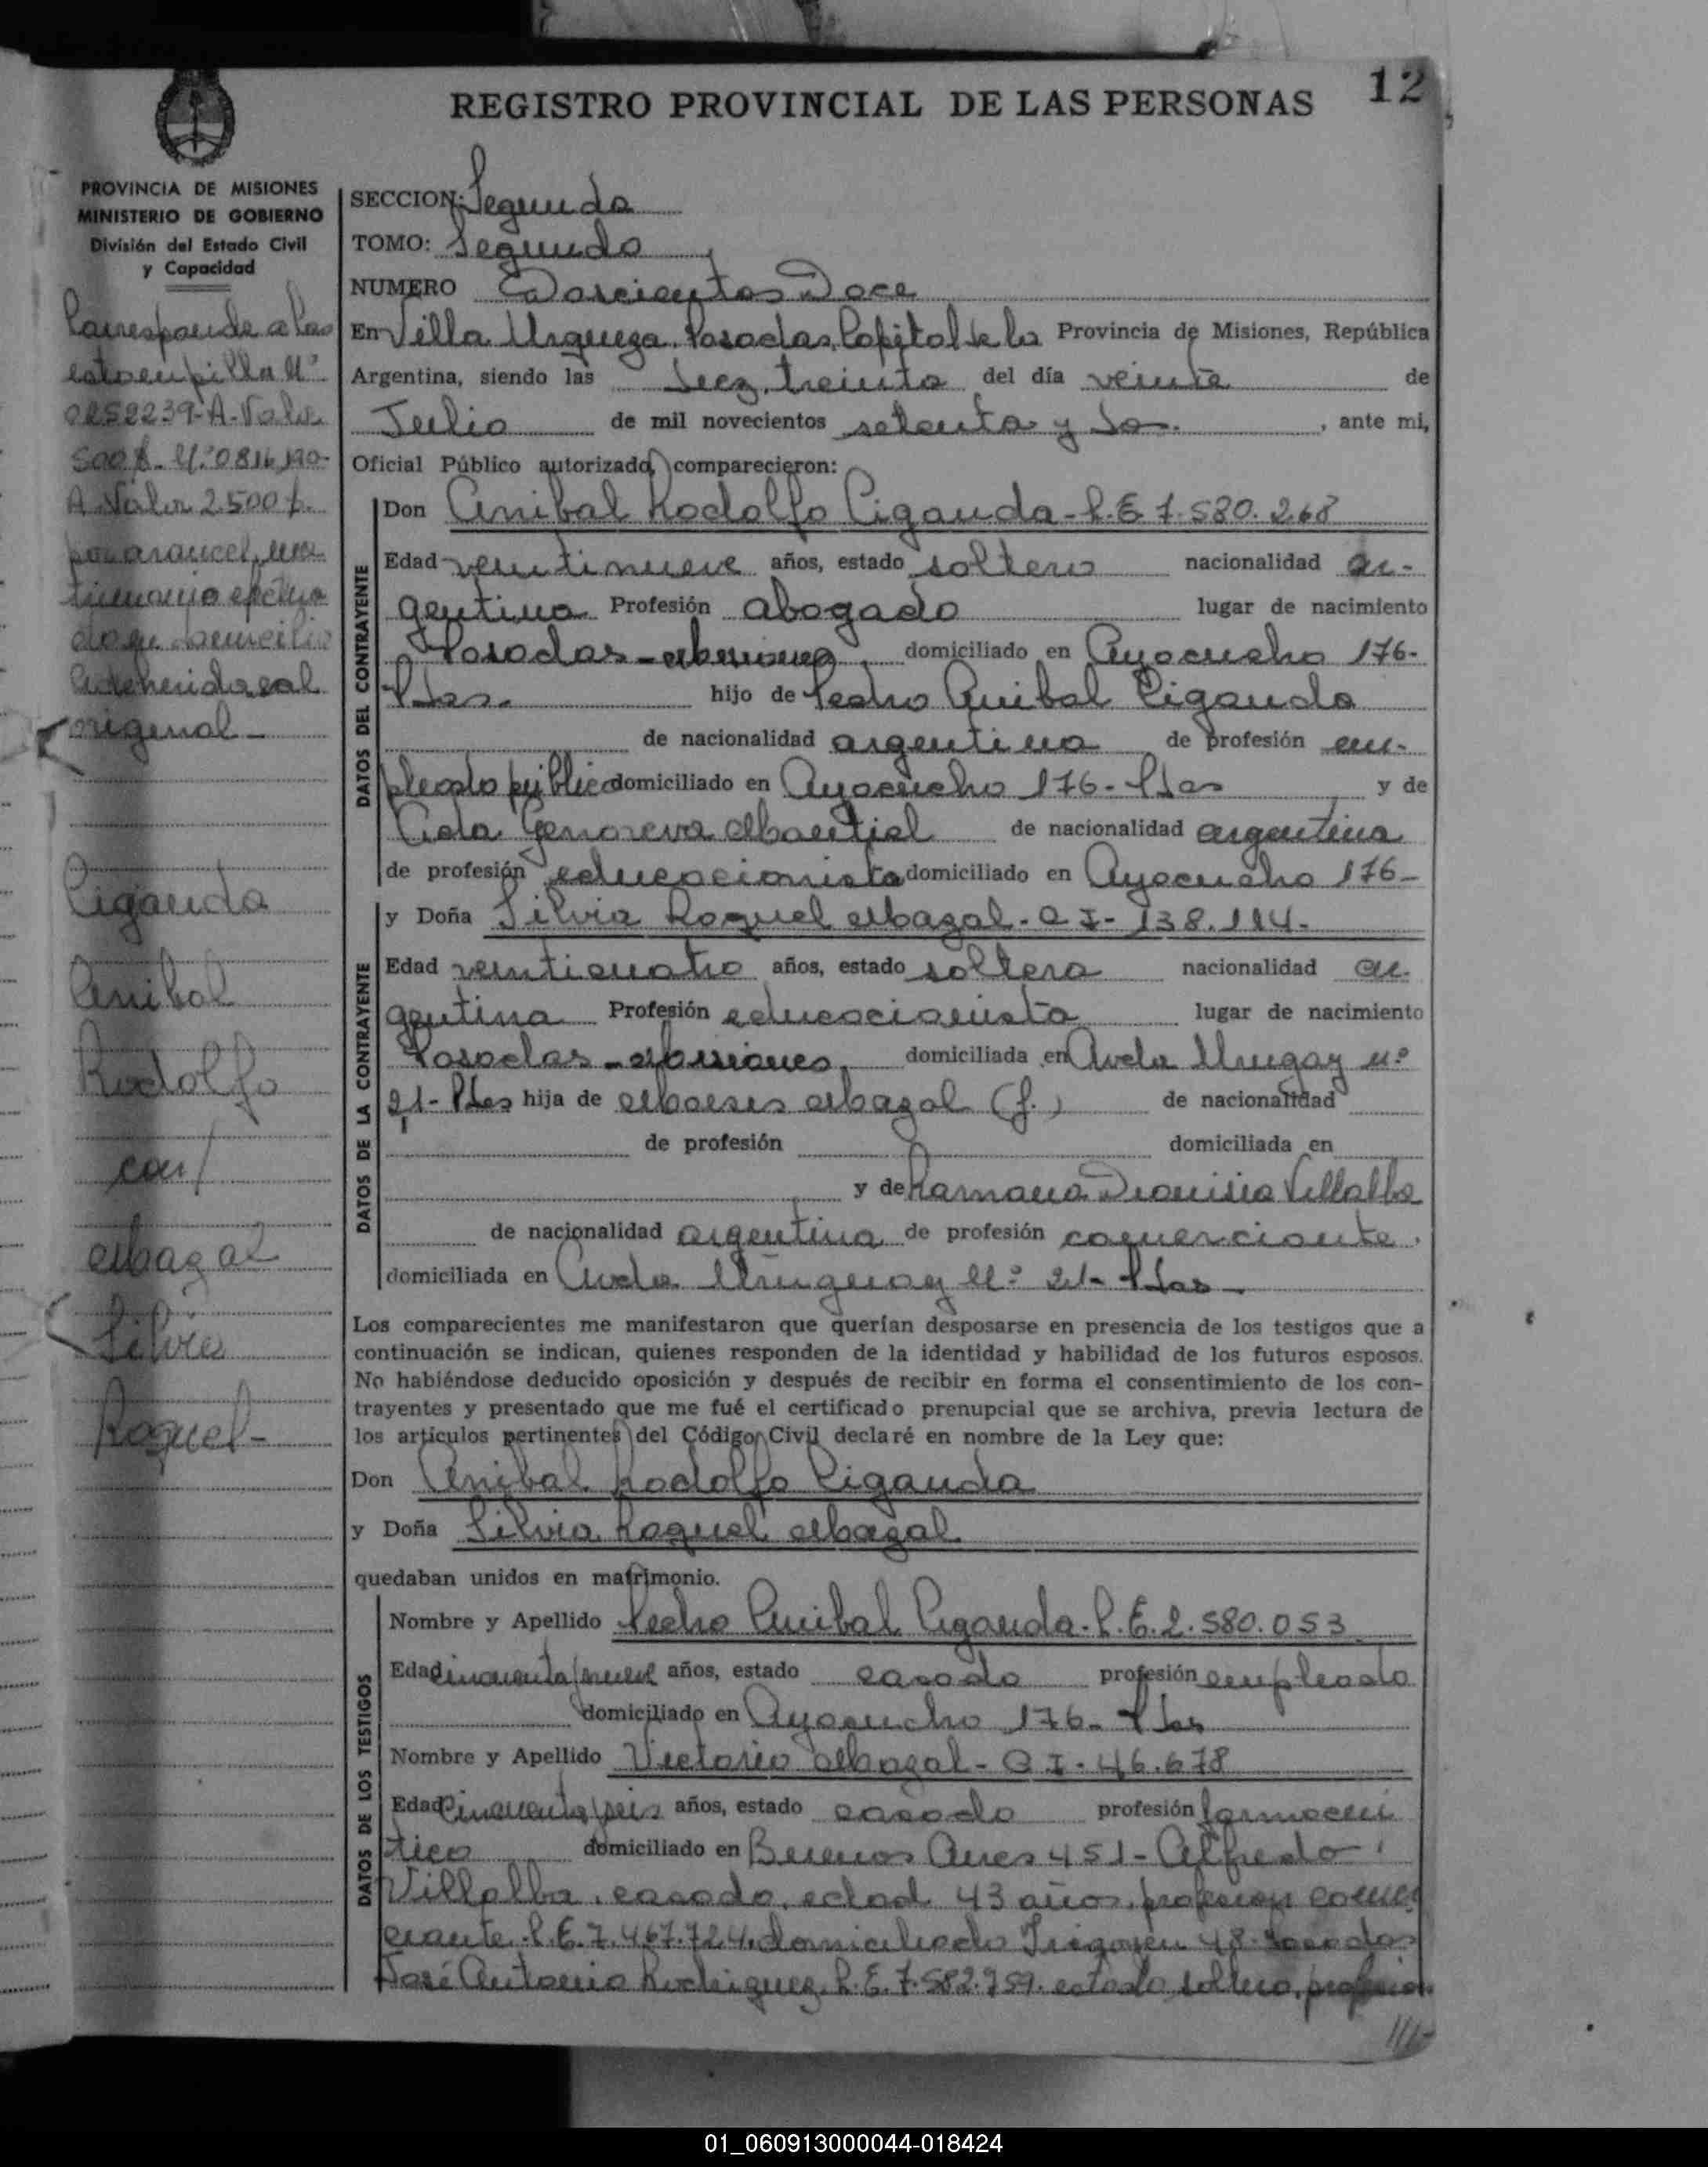 12
REGISTRO PROVINCIAL DE LAS PERSONAS
PROVINCIA DE MISIONES
MINISTERIO DE GOBIERNO
División del Estado Civil
y Capacidad
Corresponde a las
estampilla Nº
0252239-A-Valor
500 $ - Nº 0816190-
A Valor 2.500 $.
por arancel, ma
trimonio efectua
do en domicilio
adherida al
original -
Ciganda
Anibal
Rodolfo
con/
Mazal
Silvia
Raquel -
SECCION: Segunda
TOMO: Segundo
NUMERO Doscientos Doce
En Villa Urquiza, Posadas, Capital de la Provincia de Misiones, República
Argentina, siendo las diez, treinta del día veinte de
Julio de mil novecientos setenta y , ante mi,
Oficial Público autorizado, comparecieron:
DATOS DEL CONTRAYENTE
Don Anibal Rodolfo Ciganda - L.E 7.580.268
Edad veintinueve años, estado soltero nacionalidad ar-
gentina Profesión abogado lugar de nacimiento
Posadas - Misiones, domiciliado en Ayacucho 176-
Pdas. hijo de Pedro Anibal Ciganda
de nacionalidad argentina de profesión em-
pleado público domiciliado en Ayacucho 176 - Pdas y de
Genoveva Montiel de nacionalidad argentina
de profesión educacionista domiciliado en Ayacucho 176 -
DATOS DE LA CONTRAYENTE
y Doña Silvia Raquel Mazal - C I - 138.114 -
Edad veinticuatro años, estado soltera nacionalidad ar-
gentina Profesión educacionista lugar de nacimiento
Posadas - Misiones, domiciliada en Avda Uruguay nº
21 - Pdas hija de Moises Mazal (f.) de nacionalidad
de profesión domiciliada en
y de Ramona Dionisia Villalba
de nacionalidad argentina de profesión comerciante,
domiciliada en Avda Uruguay Nº 21 - Pdas -
Los comparecientes me manifestaron que querían desposarse en presencia de los testigos que a
continuación se indican, quienes responden de la identidad y habilidad de los futuros esposos.
No habiéndose deducido oposición y después de recibir en forma el consentimiento de los con-
trayentes y presentado que me fué el certificado prenupcial que se archiva, previa lectura de
los artículos pertinentes del Código Civil declaré en nombre de la Ley que:
Don Anibal Rodolfo Ciganda
y Doña Silvia Raquel Mazal
quedaban unidos en matrimonio.
DATOS DE LOS TESTIGOS
Nombre y Apellido Pedro Anibal Ciganda - L.E. 2.580.053
Edad cincuentaynueve años, estado casado profesión empleado
domiciliado en Ayacucho 176 - Pdas
Nombre y Apellido Victorio Mazal - C I - 46.678
Edad Cincuentayseis años, estado casado profesión farmaceú
tico domiciliado en Buenos Aires 451 - Alfredo
Villalba, casado, edad 43 años, profesion comer
ciante - L.E. 7.467.724, domiciliado Irigoyen 48 - Posadas
José Antonio Rodriguez, L.E. 7.582.759. estado soltero, profesion
///-
01_060913000044-018424